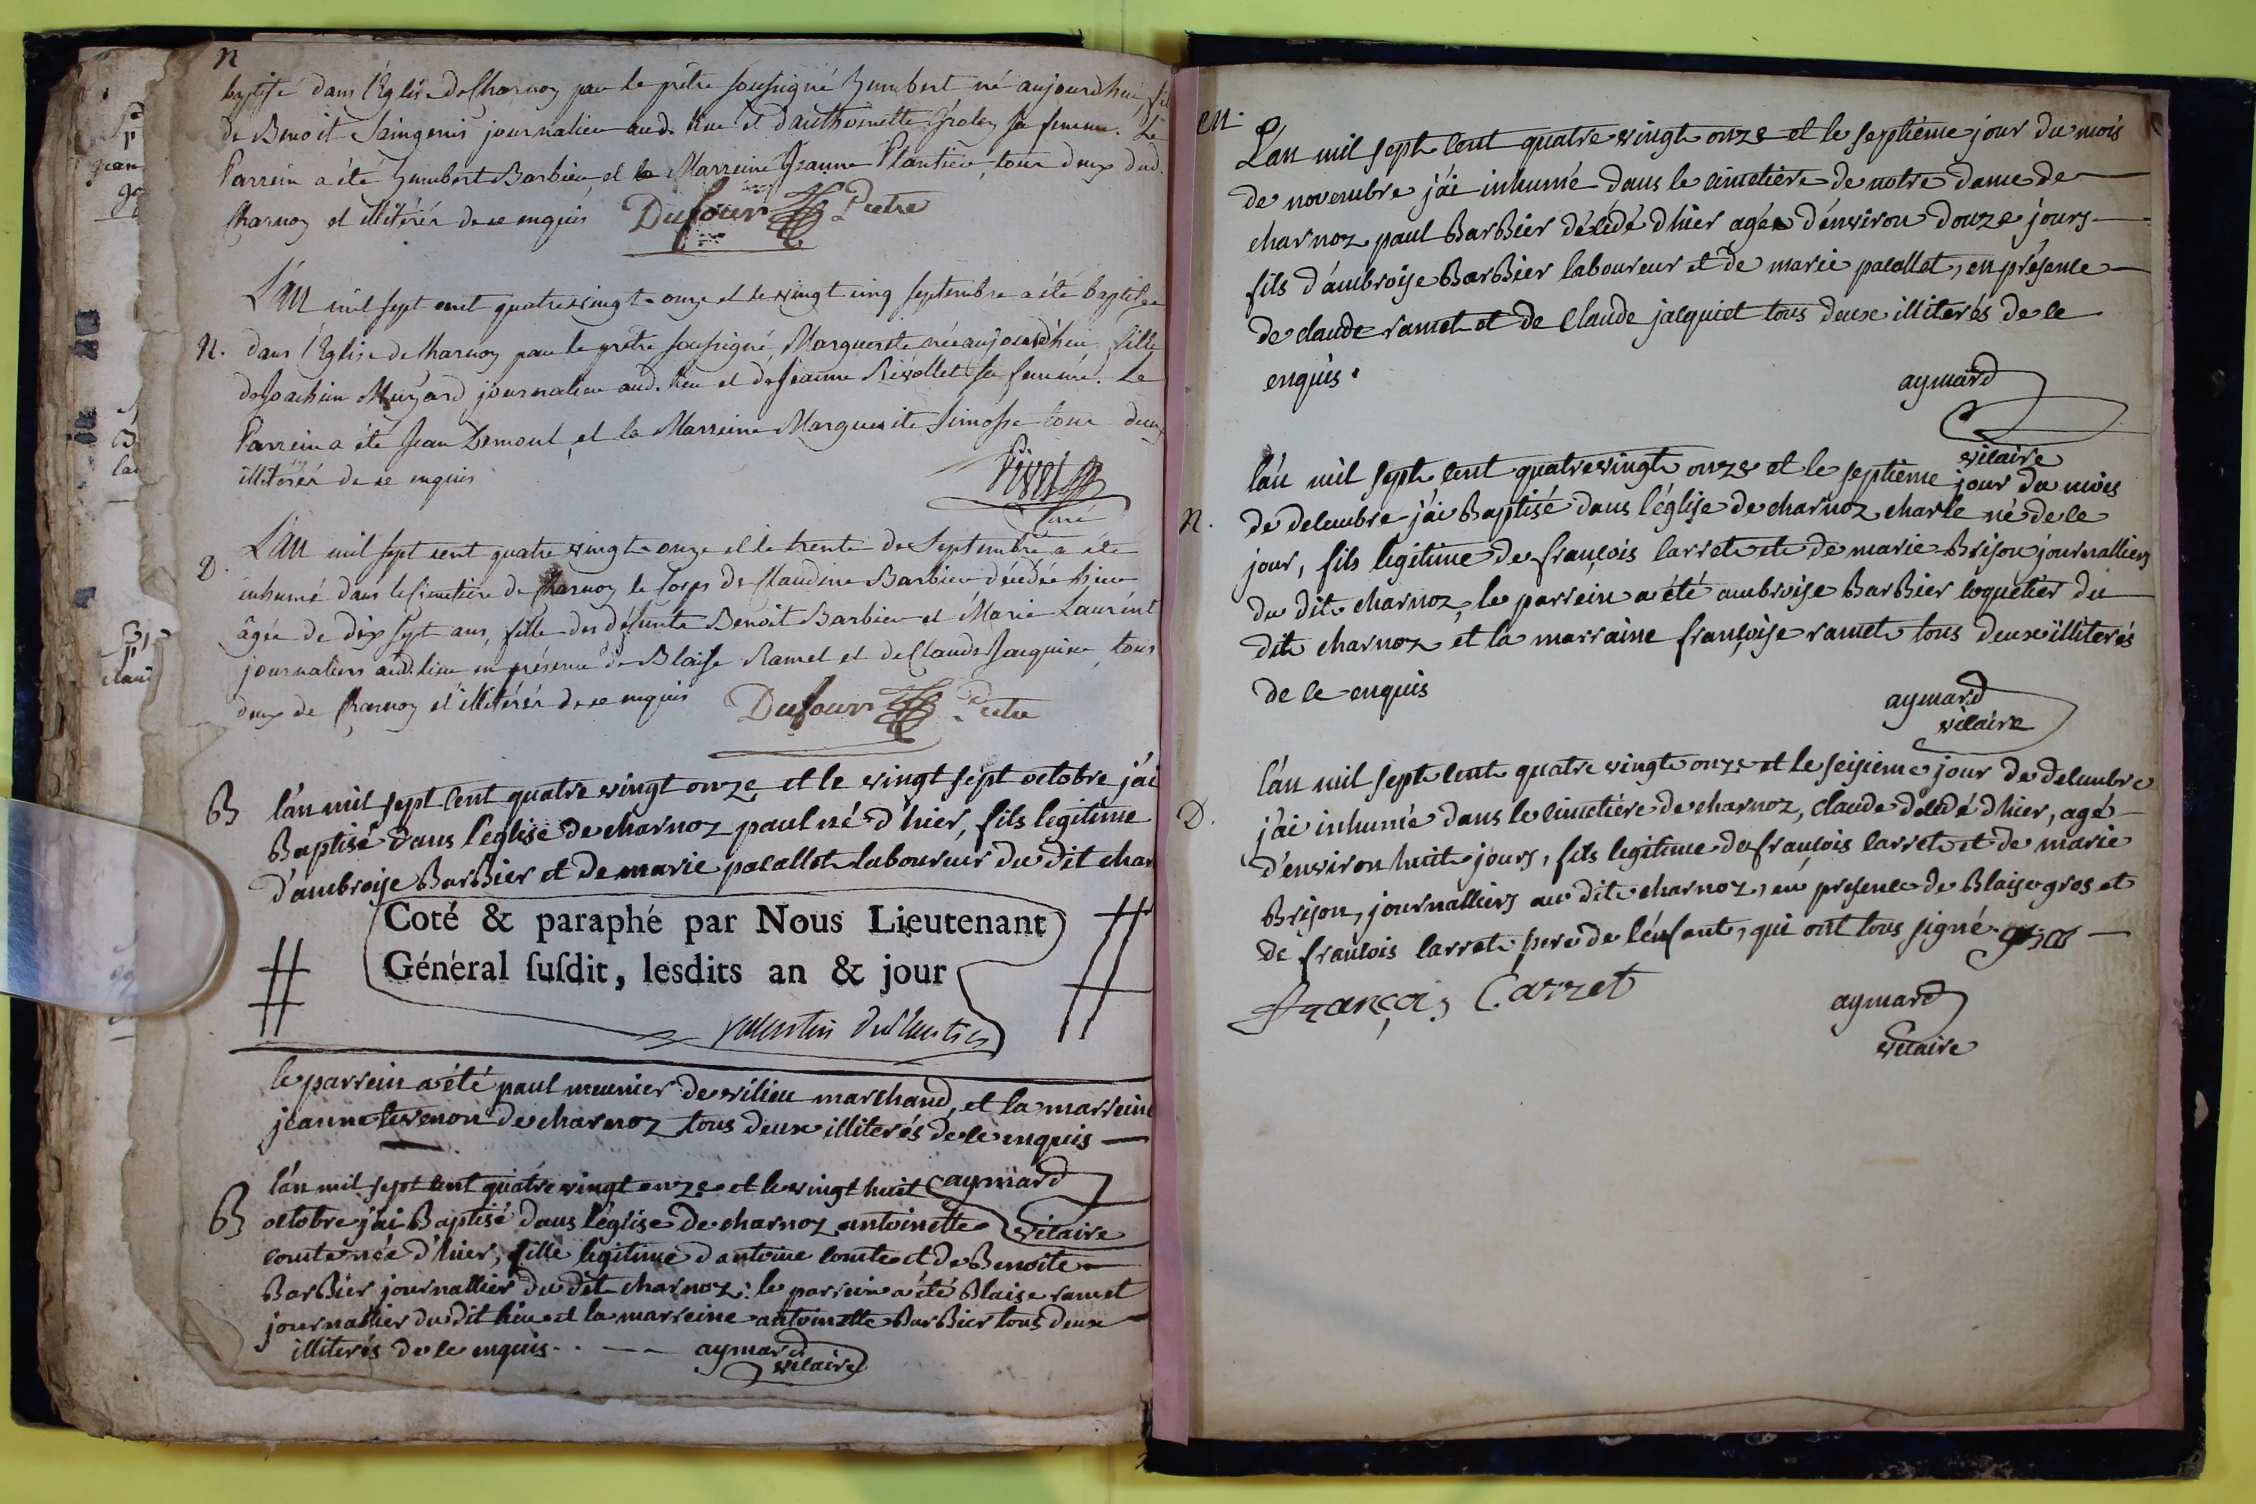 n
baptisé dans l'Eglise de Charnoz par le prêtre soussigné humbert né aujourd'hui fil
de Benoit Saingenis journalier aud. lieu et d'anthoinette sa femme. Le
Parrein a été humbert Barbier, et la Marreine Jeanne Plantier, tous deux dud.
Charnoz et illitérés de ce enquis Dufour Prêtre
L'an mil sept cent quatre vingt onze et le vingt cinq septembre a été baptisée
N. dans l'Eglise de Charnoz par le prêtre soussigné, Marguerite née aujourd'hui, fille
de Joachim Muzard journalier aud. lieu et de Jeanne Rivollet sa femme. Le
Parrein a été Jean Demont, et la Marreine Marguerite Simosse tous deux
illitérés de ce enquis
Curé
L'an mil sept cent quatre vingt onze et le trente de Septembre a été
D. inhumé dans le Cimetière de Charnoz le Corps de Claudine Barbier décédée hier
âgée de dix sept ans, fille des défunts Benoit Barbier et Marie Laurent
journaliers aud. lieu en présence de Blaise Ramel et de Claude Jacquier, tous
deux de Charnoz et illitérés de ce enquis Dufour Prêtre
B l'an mil sept cent quatre vingt onze et le vingt sept octobre j'ai
Baptisé dans l'eglise de charnoz paul né d'hier, fils legitime
d'ambroise BarBier et de marie pacallet laboureur du dit char
Coté & paraphé par Nous Lieutenant
Général ſuſdit, lesdits an & jour
le parrein a été paul meunier de vilieu marchand, et la marreine
jeanne levenon de charnoz tous deux illiterés de ce enquis
l'an mil sept cent quatre vingt onze et le vingt huit aymard
B octobre j'ai Baptisé dans l'église de charnoz antoinette vicaire
comte née d'hier, fille legitime d'antoine comte et de Benoite
BarBier journallier du dit charnoz: le parrein a été Blaise ramet
journallier du dit lieu et la marreine antoinette BarBier tous deux
illiterés de ce enquis aymard
vicaire
m.
L'an mil sept cent quatre vingt onze et le septième jour du mois
de novembre j'ai inhumé dans le cimetière de notre dame de
charnoz paul BarBier décédé d'hier agé d'environ douze jours
fils d'ambroise BarBier laboureur et de marie pacallet, en présence
de claude ramet et de claude jacquiet tous deux illiterés de ce
enquis.
aymard
vicaire
l'an mil sept cent quatre vingt onze et le septième jour du mois
N. de decembre j'ai Baptisé dans l'église de charnoz charle né de ce
jour, fils legitime de françois carret et de marie Brison journalliers
du dit charnoz, le parrein a été ambroise BarBier loquetier du
dit charnoz et la marraine françoise ramet tous deux illiterés
de ce enquis
aymard
vicaire
l'an mil sept cent quatre vingt onze et le seisieme jour de decembre
D. j'ai inhumé dans le cimetière de charnoz, claude décédé d'hier, agé
d'environ huit jours, fils legitime de françois carret et de marie
Brison, journalliers au dit charnoz, en presence de Blaise gros et
de françois carret pere de l'enfant, qui ont tous signé. gros
françois Carret
aymard
vicaire